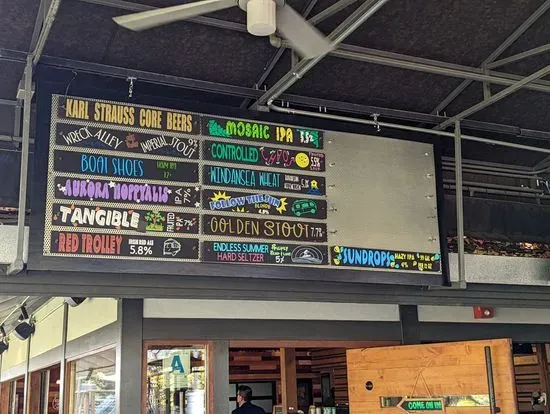 KARL STRAUSS CORE BEERS
WRECK ALLEY IMPERIAL STOUT
BOAT SHOES
AURORA HOPPYALIS IPA 7%
TANGIBLE 7%
RED TROLLEY IRISH RED ALE 5.8%
MOSAIC IPA 5.5%
CONTROLLED 5.5%
WINDANSEA WHEAT
FOLLOW THE SUN BLONDE
GOLDEN STOUT 7.7%
ENDLESS SUMMER
HARD SELTZER 5%
SUNDROPS HAZY IPA
A
COME ON IN